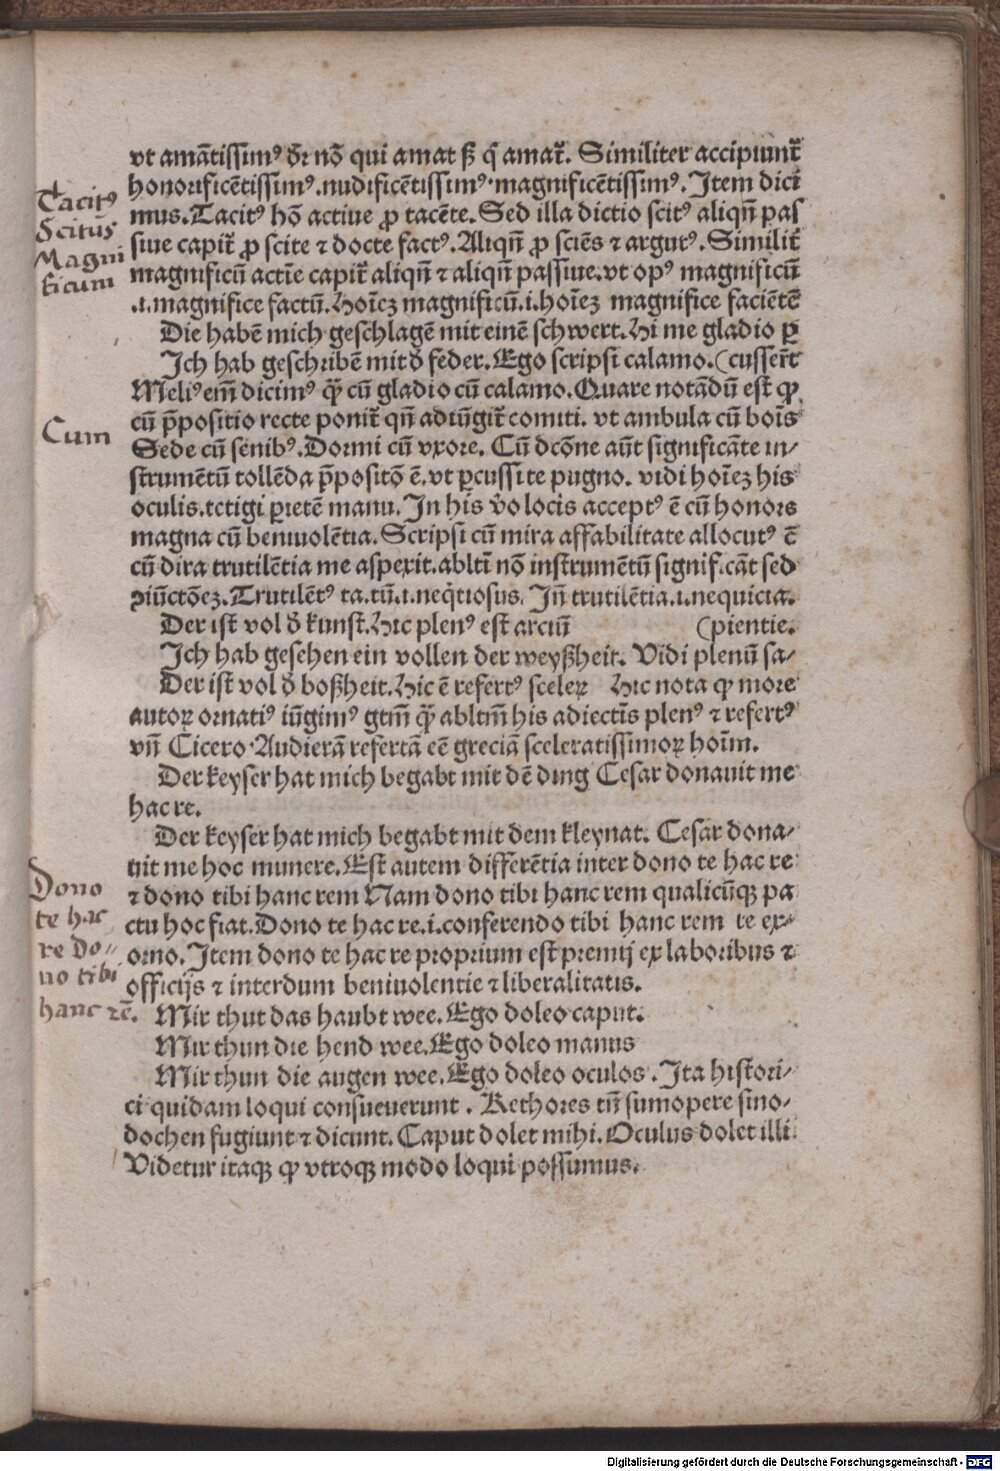 vt amātissimꝰ dr̄ nō qui amat sꝫ q̄ amat̄. Similiter accipiunt̄
honorificētissimꝰ.nudificētissimꝰ.magnificētissimꝰ. Item dici
mus.Tacitꝰ hō actiue ꝓ tacēte. Sed illa dictio scitꝰ aliqn̄ pas
siue capit̄ ꝓ scite ⁊ docte factꝰ. Aliqn̄ ꝓ sciēs ⁊ argutꝰ. Similit̄
magnificū actiē capit̄ aliqn̄ ⁊ aliqn̄ passiue.vt opꝰ magnificū
.i.magnifice factū.Hoīeꝫ magnificū.i.hoīeꝫ magnifice faciētē
Die habē mich geschlagē mit einē schwert.Hi me gladio ꝑ
Ich hab geschribē mit d̄ feder.Ego scripsi calamo. (cusser̄t
Meliꝰ em̄ dicimꝰ qꝫ̄ cū gladio cū calamo.Quare notādū est ꝙ
cū p̄positio recte ponit̄ qn̄ adiūgit̄ comiti. vt ambula cū boīs
Sede cū senibꝰ.Dormi cū vxore. Cū dcōne aūt significāte in⸗
strumētū tollēda p̄positō ē.vt ꝑcussi te pugno. vidi hoīeꝫ his
oculis.tetigi ꝑietē manu.In his v̄o locis acceptꝰ ē cū honore
magna cū beniuolētia.Scripsi cū mira affabilitate allocutꝰ ē
cū dira trutilētia me aspexit.abltī nō instrumētū significāt sed
ꝯiūctōeꝫ.Trutilētꝰ ta.tū.i.neq̄tiosus. Jn̄ trutilētia.i.nequicia.
Der ist vol d̄ kunst.Hic plenꝰ est arciū (pientie.
Ich hab gesehen ein vollen der weyßheit. Vidi plenū sa⸗
Der ist vol d̄ boßheit.Hic ē refertꝰ sceleꝝ Hic nota ꝙ more
autoꝝ ornatiꝰ iūgimꝰ gtm̄ qꝫ̄ abltm̄ his adiectīs plenꝰ ⁊ refertꝰ
vn̄ Cicero.Audierā refertā eē greciā sceleratissimoꝝ hoīm.
Der keyser hat mich begabt mit dē ding Cesar donauit me
hac re.
Der keyser hat mich begabt mit dem kleynat. Cesar dona⸗
uit me hoc munere.Est autem differētia inter dono te hac re
⁊ dono tibi hanc rem Nam dono tibi hanc rem qualicūqꝫ pa
ctu hoc fiat.Dono te hac re.i.conferendo tibi hanc rem te ex⸗
orno. Item dono te hac re proprium est premij ex laboribus ⁊
officijs ⁊ interdum beniuolentie ⁊ liberalitatis.
Mir thut das haubt wee.Ego doleo caput.
Mir thun die hend wee.Ego doleo manus
Mir thun die augen wee.Ego doleo oculos. Ita histori⸗
ci quidam loqui consueuerunt. Rethores tn̄ sumopere sino⸗
dochen fugiunt ⁊ dicunt. Caput dolet mihi. Oculus dolet illi.
Videtur itaqꝫ ꝙ vtroqꝫ modo loqui possumus.
Tacitꝰ
Scitus
Magni
ficum
Cum
Dono
te hac
re do⸗
no tibi
hanc rē.
Digitalisierung gefördert durch die Deutsche Forschungsgemeinschaft - DFG